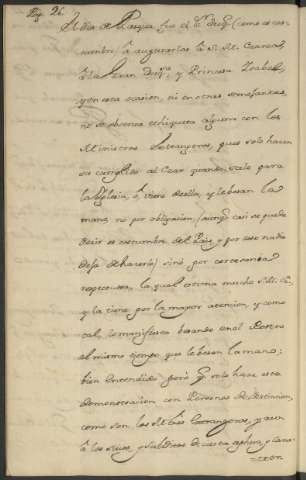 Pg. 26.
El dia de Pasqua fue el Sr Duq. (como es cos-
tumbre) à augurarlas à S. M. Czarea,
à la Gran Duq.sa, y Princesa Isabel,
y en esta ocasion, ni en otras semejantes,
no se observa ethiqueta alguna con los
Ministros Extrangeros, pues solo hacen
su cumplido al Czar quando sale para
la Yglesia, ò viene de ella, y le besan la
mano, no por obligacion, (aunq. casi se puede
decir es costumbre del Pais, y por esso nadie
dexa de hacerlo) sinò por ceremonia
respectuosa, la qual estima mucho S. M. Cz.
y la tiene por la mayor atencion, y como
tal, lo manifiesta besando en el Rostro
al mismo tiempo que le besan la mano:
bien entendido, però q. solo hace esta
demonstracion con Personas de distincion,
como son los Ministros Extrangeros, y aun
à los suios, y Subditos de cierta esphera, y cara-
cter